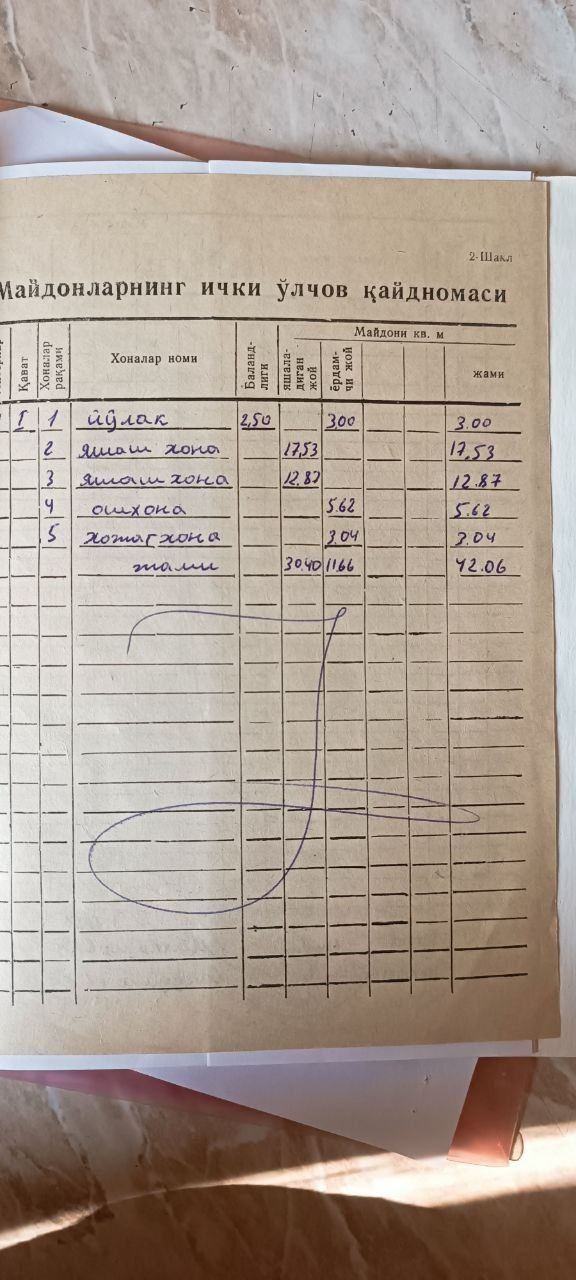 2-Шакл
Майдонларнинг ички ўлчов қайдномаси
Қават Хоналар рақами Хоналар номи Баланд-лиги Майдони кв. м
яшала-диган жой ёрдам-чи жой жами
I 1 йўлак 2,50 3.00 3.00
2 яшаш хона 17,53 17.53
3 яшаш хона 12.87 12.87
4 ошхона 5.62 5.62
5 хожатхона 3.04 3.04
жами 30.40 11.66 42.06